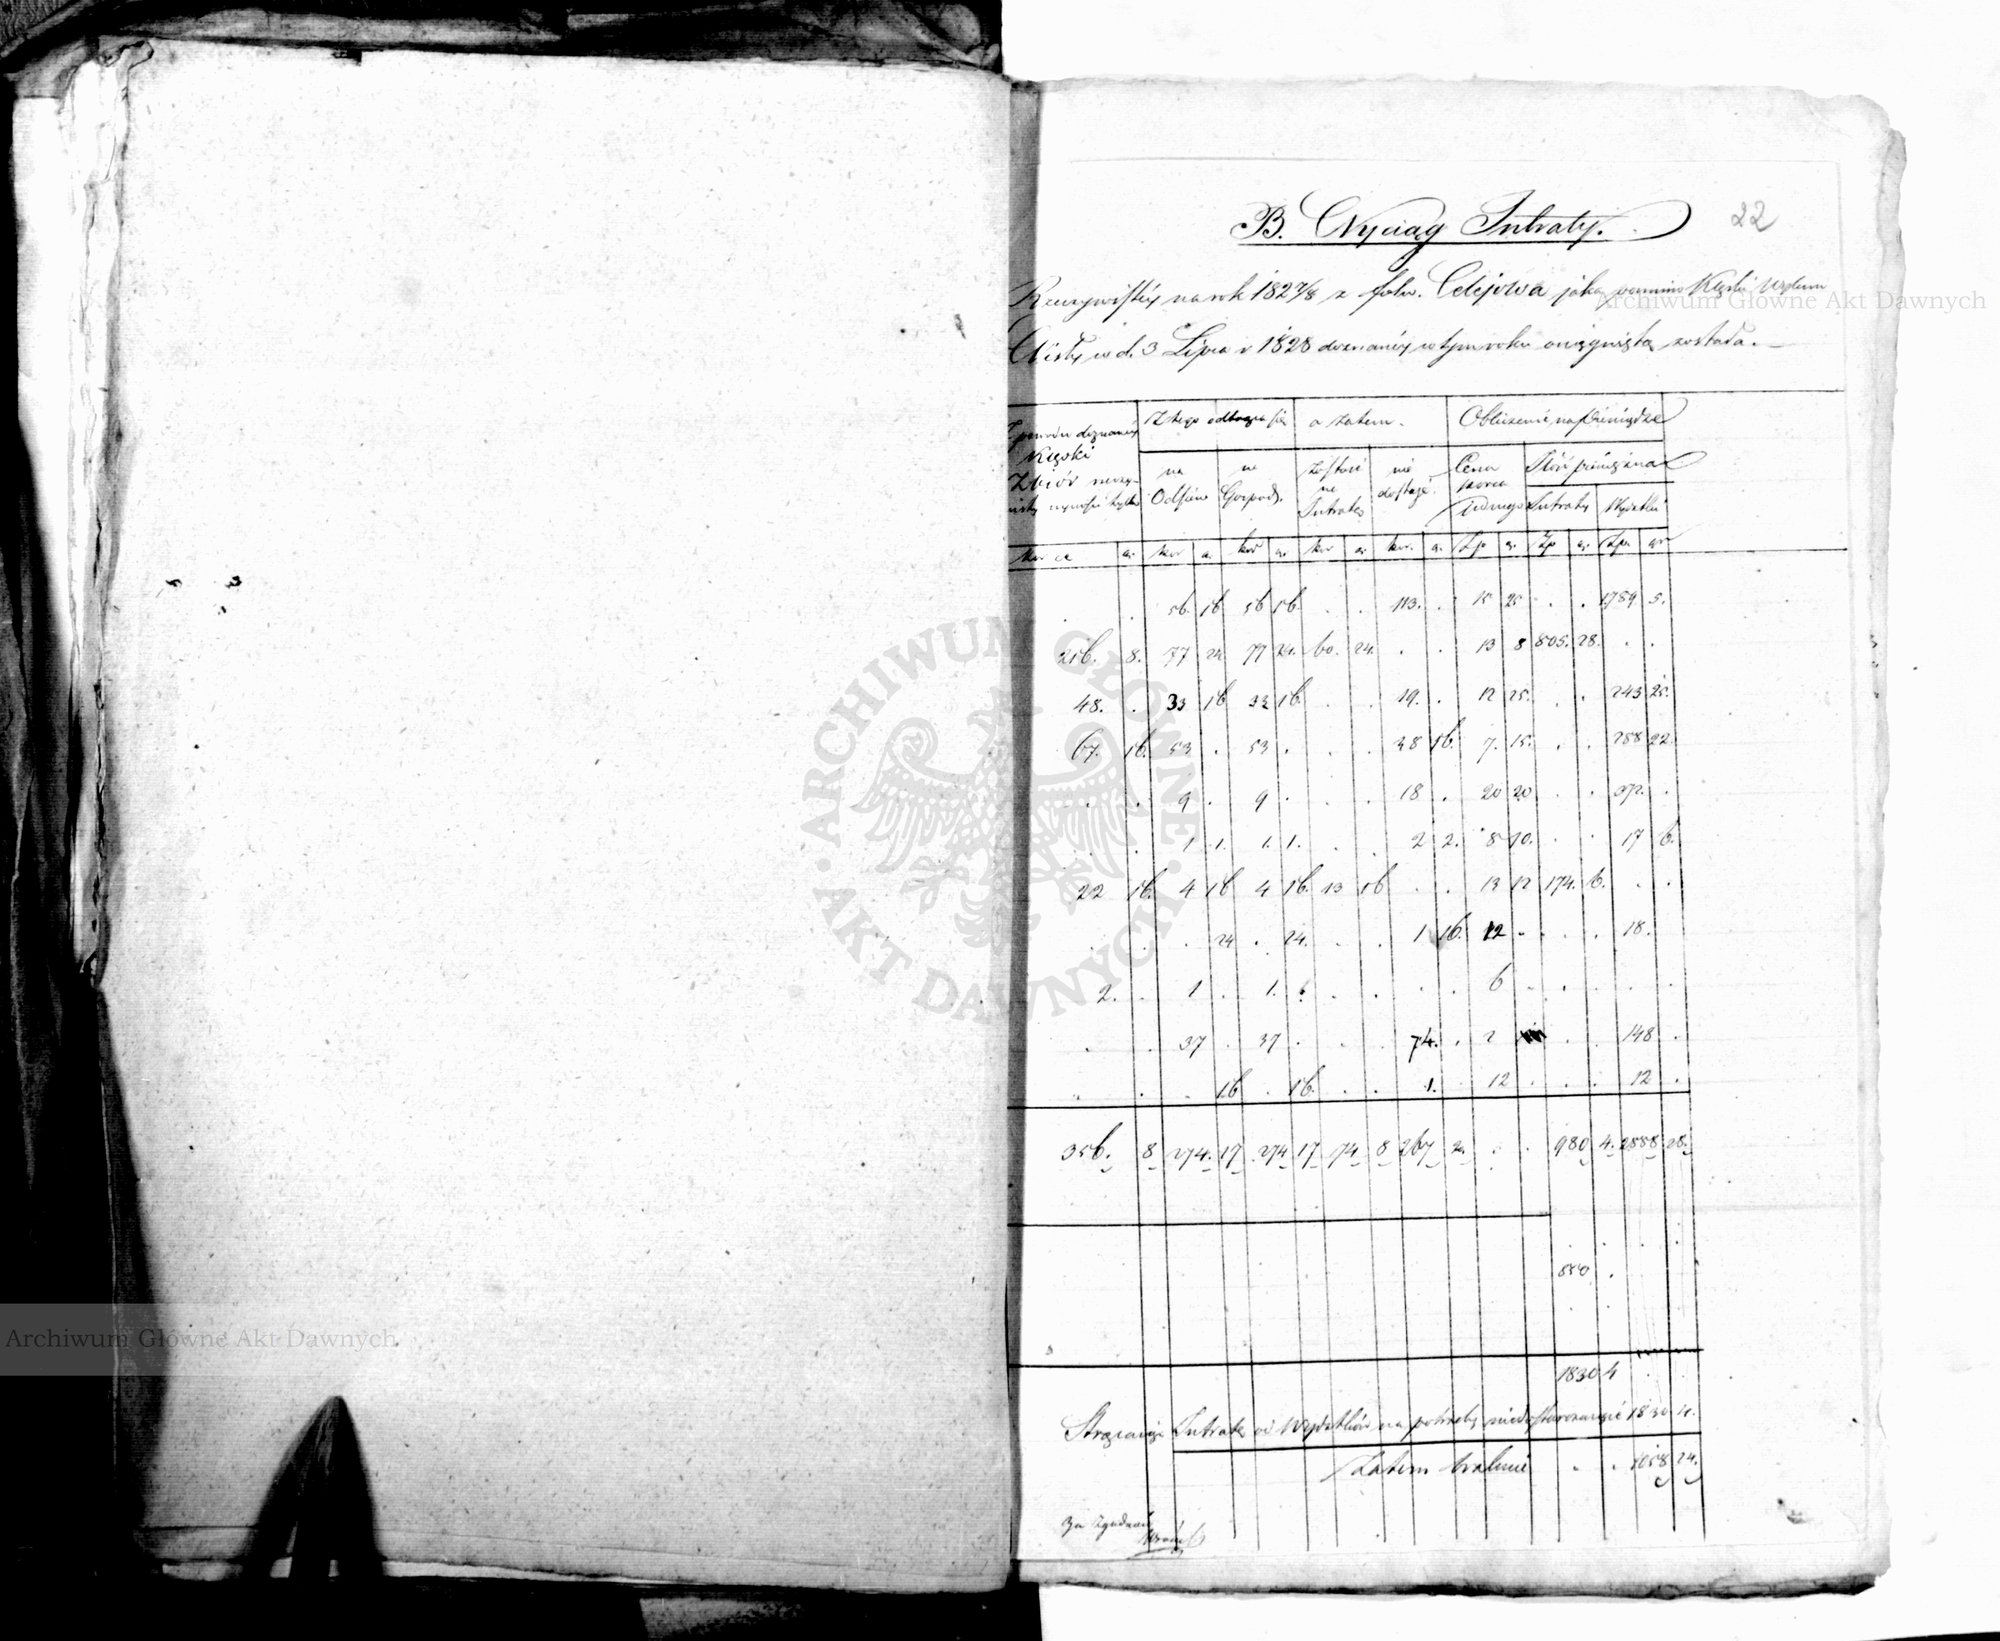 22
B. Wyciąg Intraty.
Rzeczywistéy na rok 1827/8 z folw. Celejowa jaka pomimo Klęski Wylewu
Wisły w d. 3 Lipca r 1828 doznanéy w tym roku osiągnięta została.
Z powodu doznanéy Z tego odtrąca się a zatem. Obliczenie na Pieniądze
Klęski
Zbiór rzeczy- na na zostaie nie Cena Ilość pieniężna
wisty wynosi tylko Odsiew Gospod. na Intratę dostaje. korca jednego Intraty Wydatku
korce g. kor g. kor g. kor g. kor. g. Zp g. Zp g. Zp. gr
. . 56 16 56 16 . . 113. . 15 25 . . 1789 5.
216. 8. 77 24 77 24. 60. 24. . . 13 8 805. 28. . .
48. . 33 16 33 16. . . 19. . 12 25. . . 243 25.
67. 16. 53 . 53 . . . 38 16. 7. 15. . . 288 22.
. . 9 . 9 . . . 18 . 20 20 . . 372. .
. . 1 1. 1. 1. . . 2 2. 8 10. . . 17 6.
22 16. 4 16 4 16. 13 16 . . 13 12 174. 6. . .
. . . 24 . 24. . . 1 16. 12 . . . 18.
2. . 1 . 1. . . . . . 6 . . . . .
. . 37 . 37 . . . 74. . 2 . . 148 .
. . . 16 . 16. . . 1. 12 . . . 12 .
356. 8 274. 17 274 17 74 8 267 2. . . 980 4. 2888 28.
850 .
1830 4
Strąciwszy Intratę od Wydatków na potrzeby 1830. 4.
Zatem brakuie . . 1058 24.
Za Zgodność